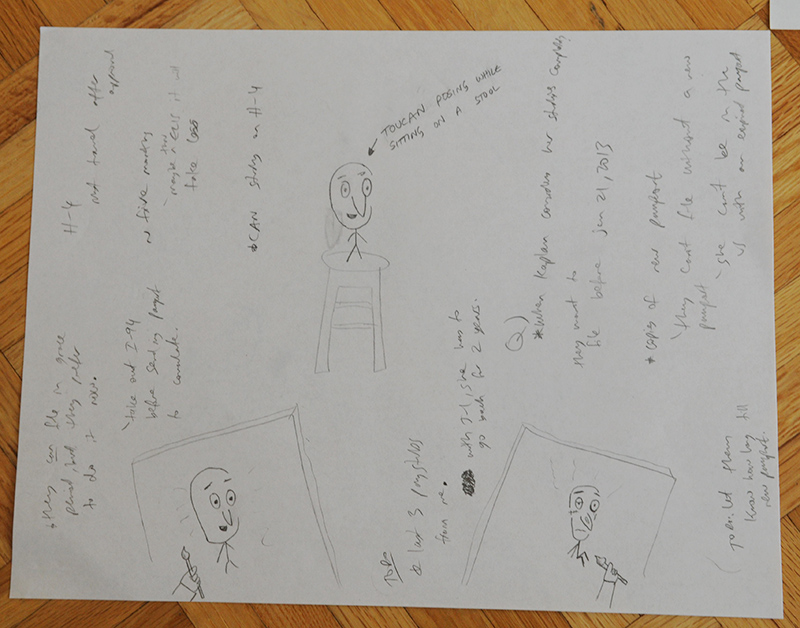 TOUCAN POSING WHILE
SITTING ON A STOOL
H-4
not travel after
approval
maybe
take
*CAN study on H-4
*they can file in grace
period, but they prefer
to do it now.
take out I-94
before sending passport
to consulate.
Q)
*when Kaplan considers her studies complete
they want to
file before jan 21, 2013
*copies of new passport
they can't file without a new
passport
she can't be in the
US with an expired passport
TO DO
last 3 paystubs
from me.
with J-1, she has to
go back for 2 years.
TO DO: let them
know how long till
new passport.